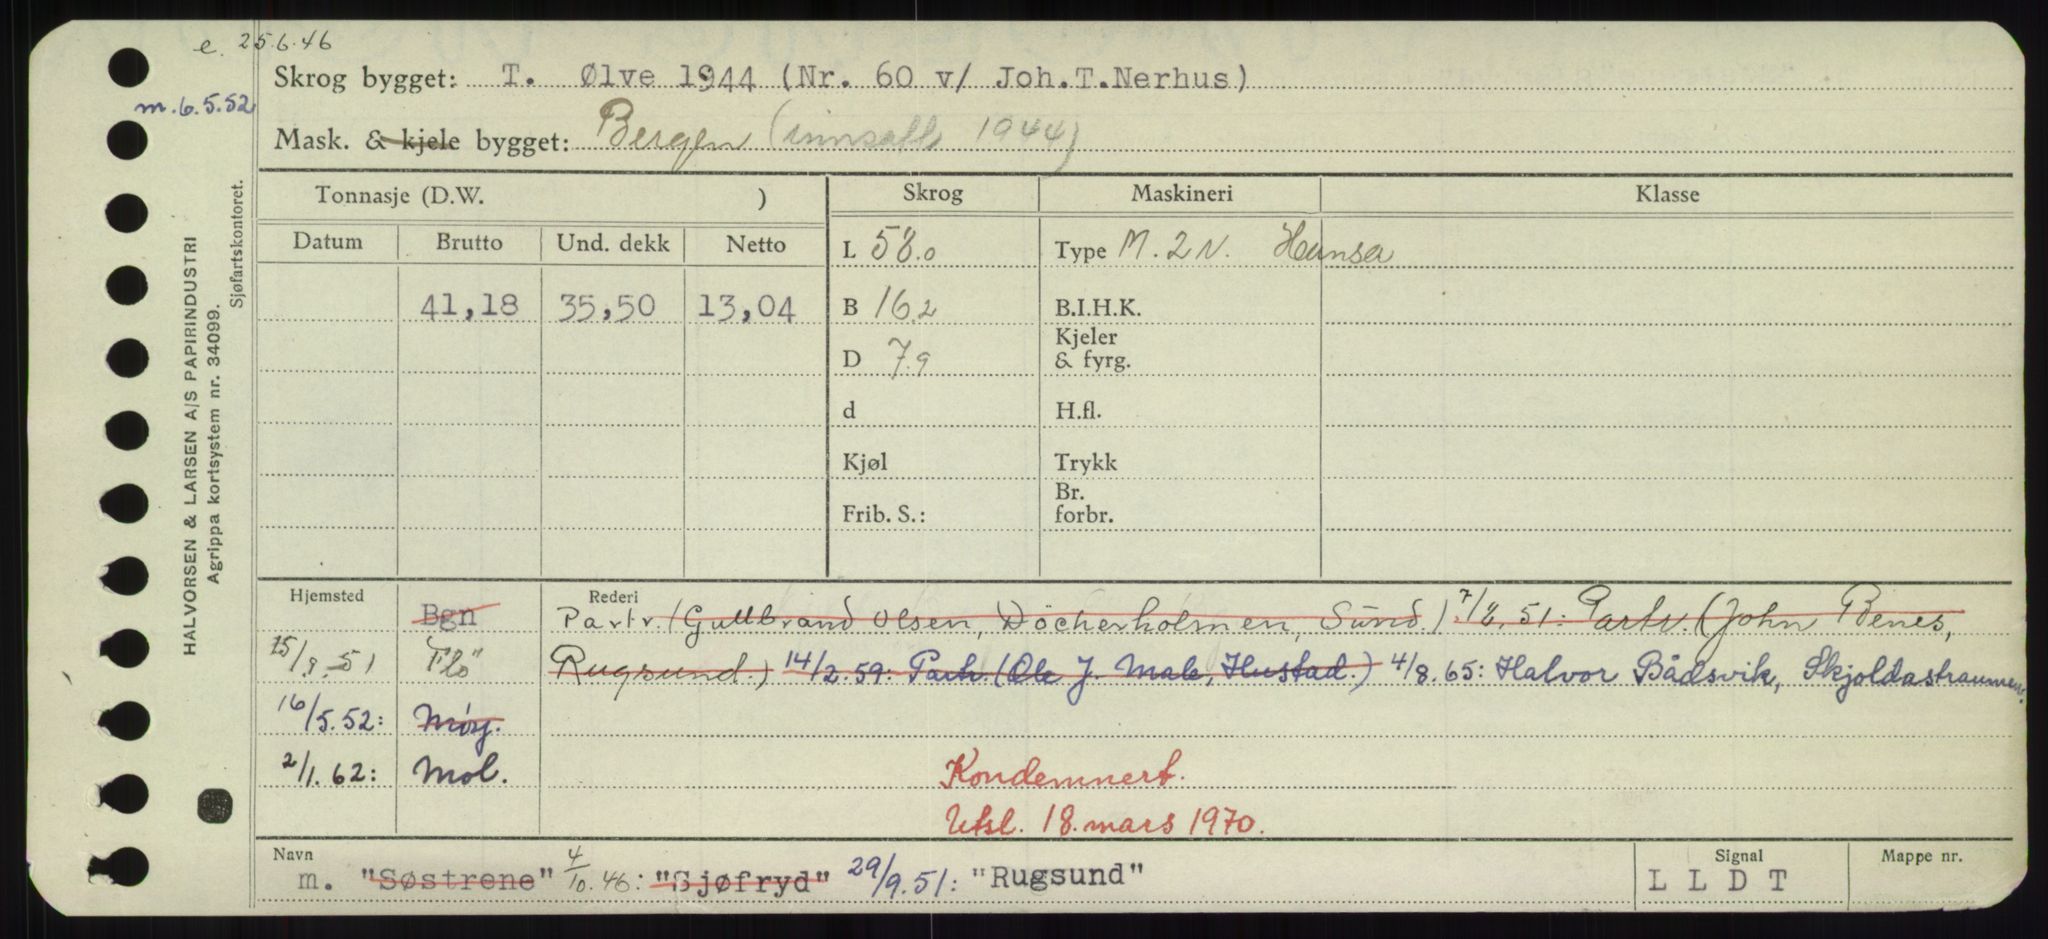 e. 25.6.46
m. 6.5.52
Skrog bygget: T. Ølve 1944 (Nr. 60 v/ Joh.T.Nerhus)
Mask. & kjele bygget: Bergen (innsatt 1944)
HALVORSEN & LARSEN A/S PAPIRINDUSTRI
Agrippa kortsystem nr. 34099.
Sjøfartskontoret.
Tonnasje (D.W. ) Skrog Maskineri Klasse
Datum Brutto Und. dekk Netto L 58.0 Type M. 2 N. Hansa
41,18 35,50 13,04 B 16.2 B.I.H.K.
D 7.9 Kjeler & fyrg.
d H.fl.
Kjøl Trykk
Frib. S.: Br. forbr.
Hjemsted Rederi
Bgn Partr. (Gullbrand Olsen, Döckerholmen, Sund.) 7/8.51: Partr. (John Benes,
15/9.51 Flø Rugsund.) 14/2.59: Partr. (Ole J. Male, Hustad.) 4/8.65: Halvor Bådsvik, Skjoldastraumen.
16/5.52: Mosj.
2/1.62: Mol. Kondemnert.
Utsl. 18. mars 1970.
Navn Signal Mappe nr.
m. "Søstrene" 4/10.46: "Sjøfryd" 29/9.51: "Rugsund" L L D T